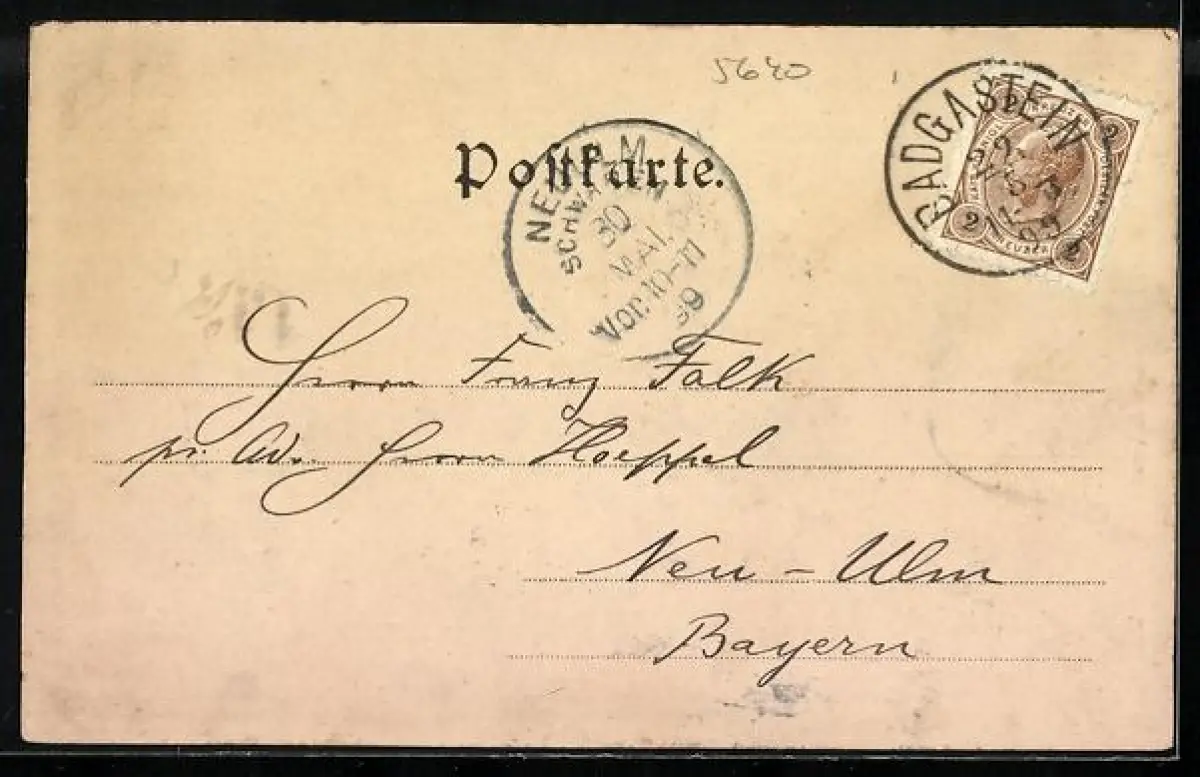 5640
Postkarte.
BADGASTEIN
99
2 2 2
NEU-ULM
SCHWABEN
30
MAI
Vor. 10-11
99
Herrn Franz Falk
pr. Adr. Herrn Hoeppel
Neu-Ulm
Bayern